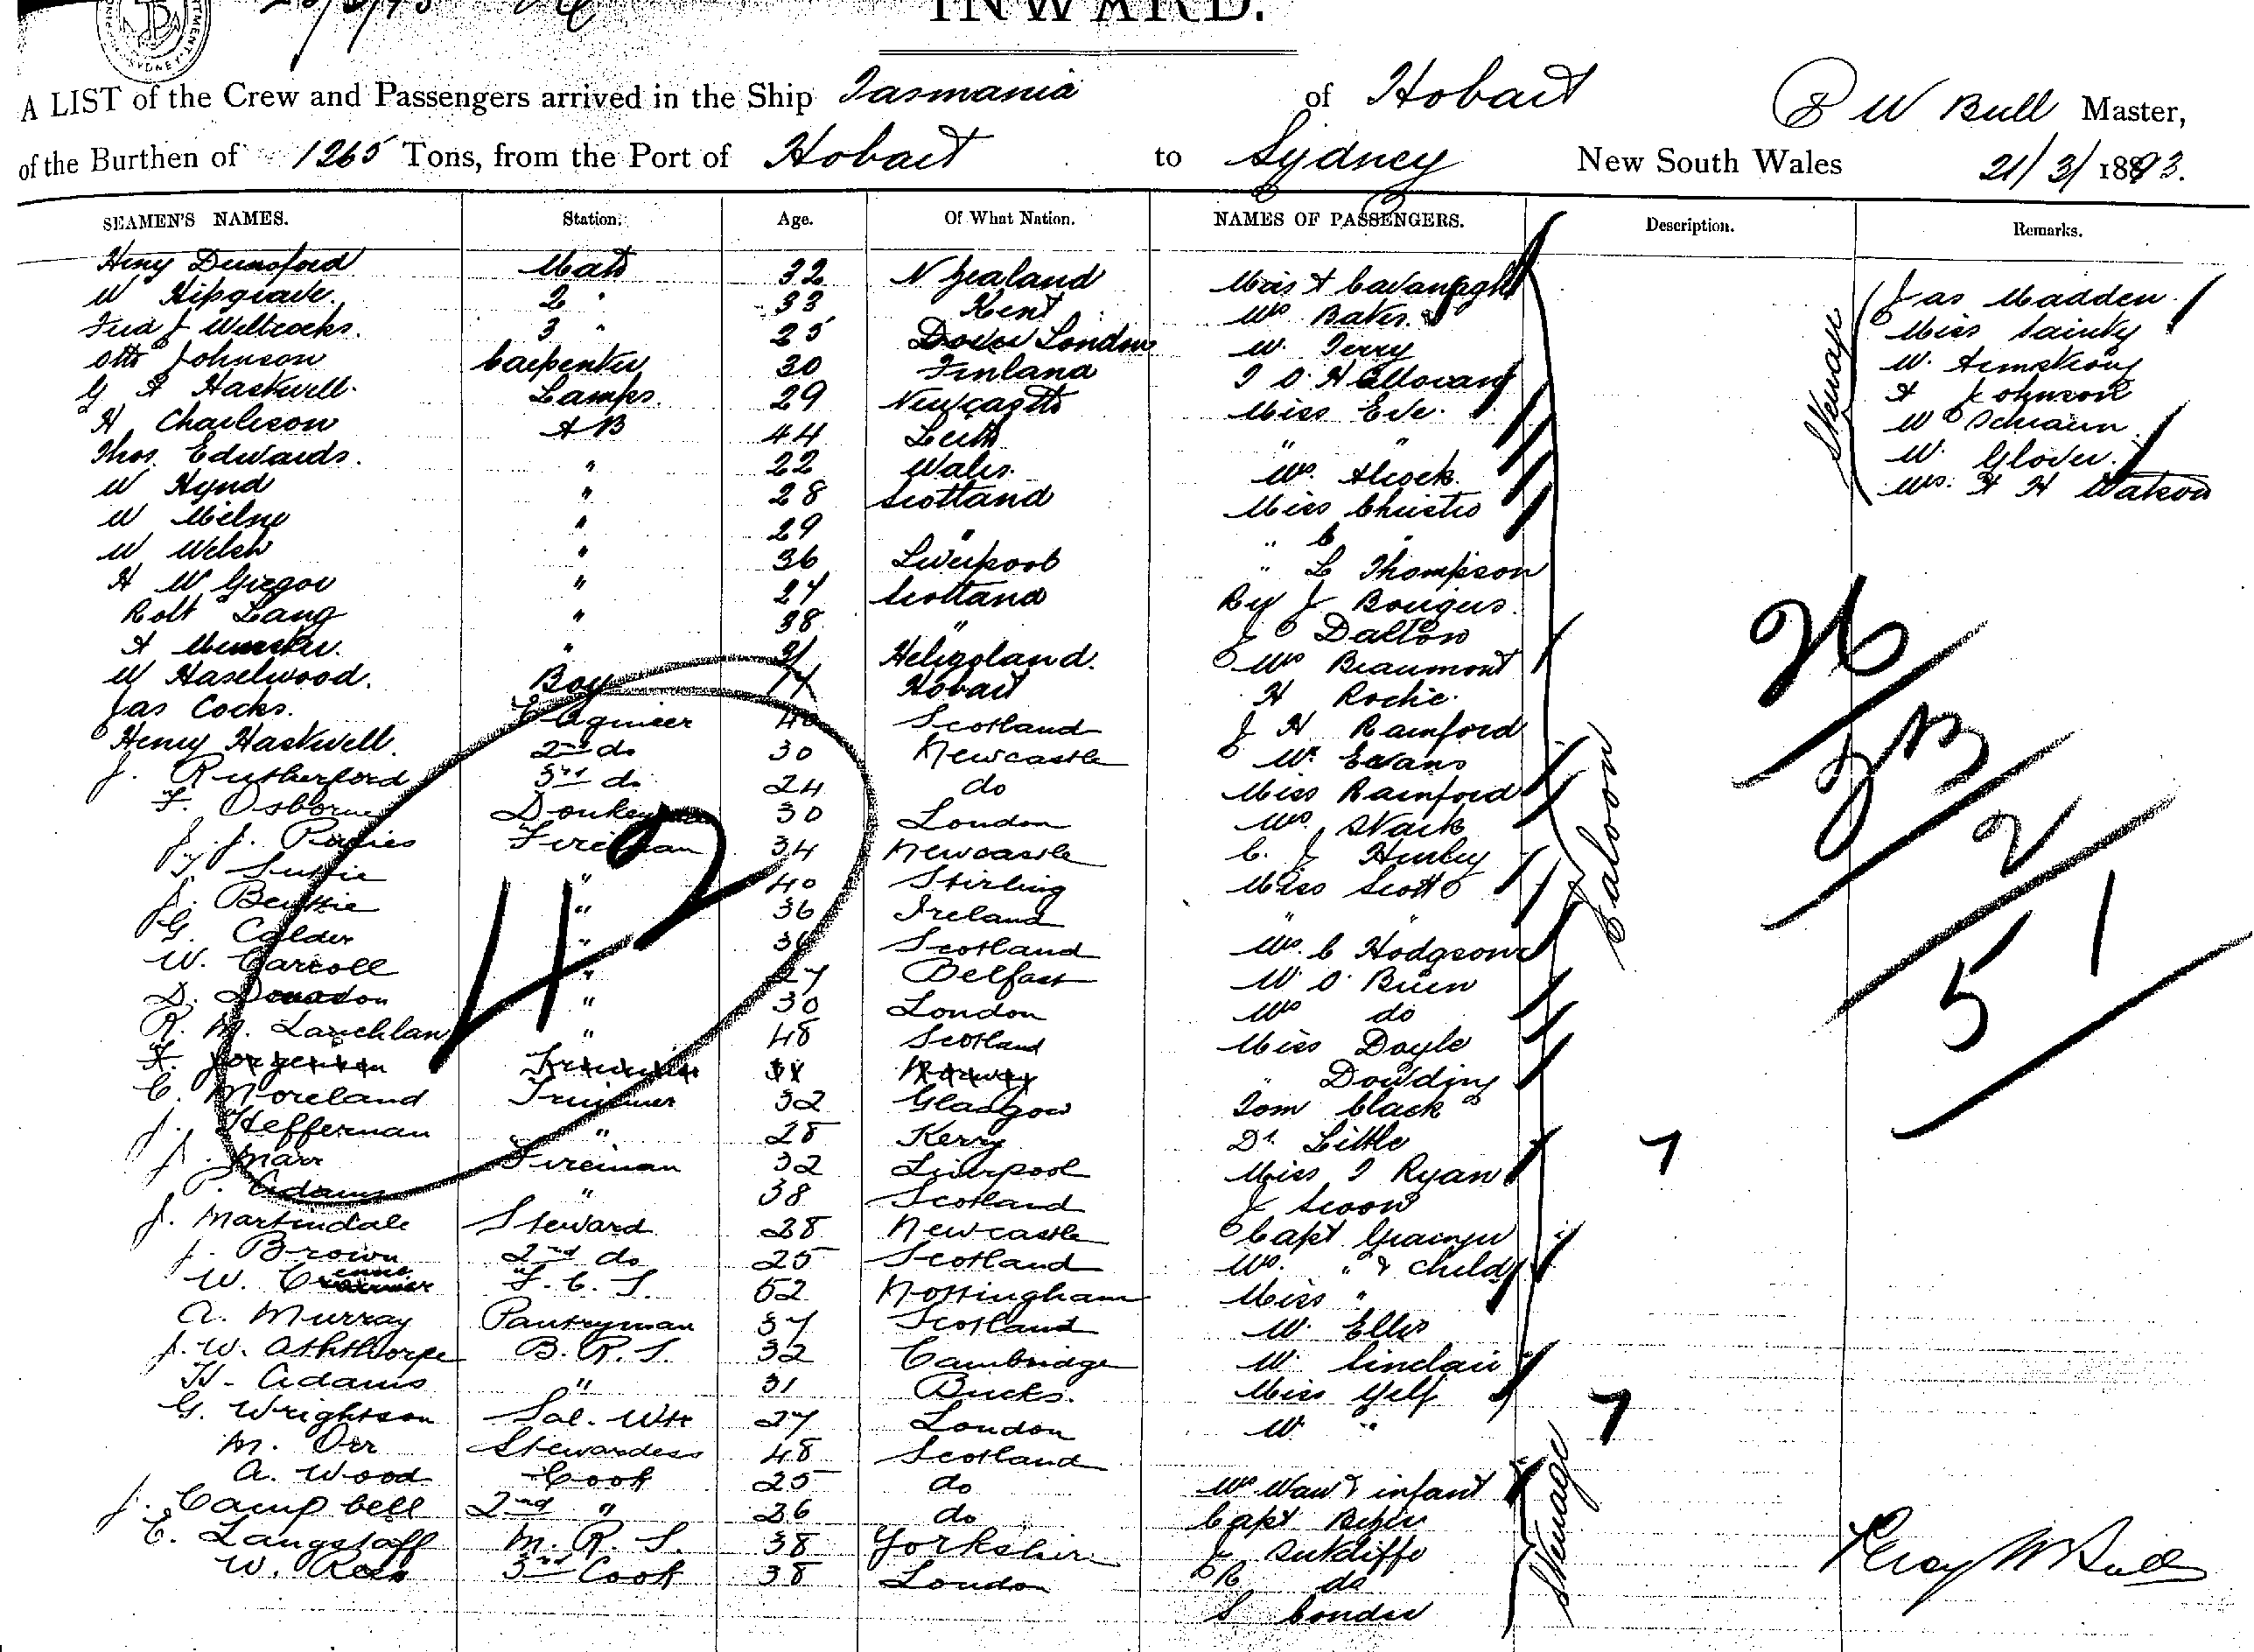 INWARD.
A LIST of the Crew and Passengers arrived in the Ship Tasmania of Hobart P W Bull Master,
of the Burthen of 1265 Tons, from the Port of Hobart to Sydney New South Wales 21/3/1893.
SEAMEN'S NAMES. Station. Age. Of What Nation. NAMES OF PASSENGERS. Description. Remarks.
Heny Dunsford Mate 32 N Zealand Miss A Cavanagh Jas Madden
W Hipgrave. 2 " 33 Kent Mrs Baker Miss Sainty
Fred J Willcocks. 3 " 25 Dover London W. Terry W. Armstrong
Otto Johnson Carpenter 30 Finland T O'Halloran A Johnson
G A Haskwell. Lamps. 29 Newcastle Miss Eve. W Schramm
H Charleson A B 44 Leith " " W. Glover.
Thos. Edwards. " 22 Wales. Mrs. Alcock. Mrs. H H Watson
W Hynd " 28 Scotland Miss Christie
W Milne " 29 " " C "
W Welsh " 36 Liverpool " L Thompson
H W Gregor " 27 Scotland Rev J
Robt Lang " 38 " J Dalton
A " 21 Heligoland. Mrs Beaumont
W Haselwood. Boy 17 Hobart H Roche.
Jas Cocks. Engineer 40 Scotland J H Rainford
Henry Haskwell. 2nd do 30 Newcastle Mr Evans
J. Rutherford 3rd do 24 do Miss Rainford
F. Osborne Donkeyman 30 London Mrs. Stack
J. J. Fireman 34 Newcastle C. J Hurley
" 40 Stirling Miss Scott
J. Beattie " 36 Ireland " "
G. Calder " 36 Scotland Mrs. C Hodgson
W. Carroll " 27 Belfast W. O'Brien
D. " 30 London Mrs do
R. M. Lauchlan " 48 Scotland Miss Doyle
" Dowding
C. Moreland Trimmer 32 Glasgow Tom Black
J. Heffernan " 28 Kerry Dr. Little
J. Marr Fireman 32 Liverpool Miss T Ryan
P. Adams " 38 Scotland J Scoon
J. Martindale Steward 28 Newcastle Capt Grainger
J. Brown 2nd do 25 Scotland Mrs. " & child
W. F. C. S. 52 Nottingham Miss "
A. Murray Pantryman 37 Scotland W. Ellis
J. W. Aththorpe B. R. S. 32 Cambridge W. Sinclair
H. Adams " 31 Bucks. Miss Yelf
G. Wrightson Sal. Wtr 27 London W. "
M. Orr Stewardess 48 Scotland
A. Wood Cook 25 do Mrs Waw & infant
J. Campbell 2nd " 26 do Capt
E. Langstaff M. R. S. 38 Yorkshire J Sutcliffe
W. Ross 3rd Cook 38 London R do
S Conder
Saloon
Steerage
Steerage
42
26
23
2
51
Percy W Bull